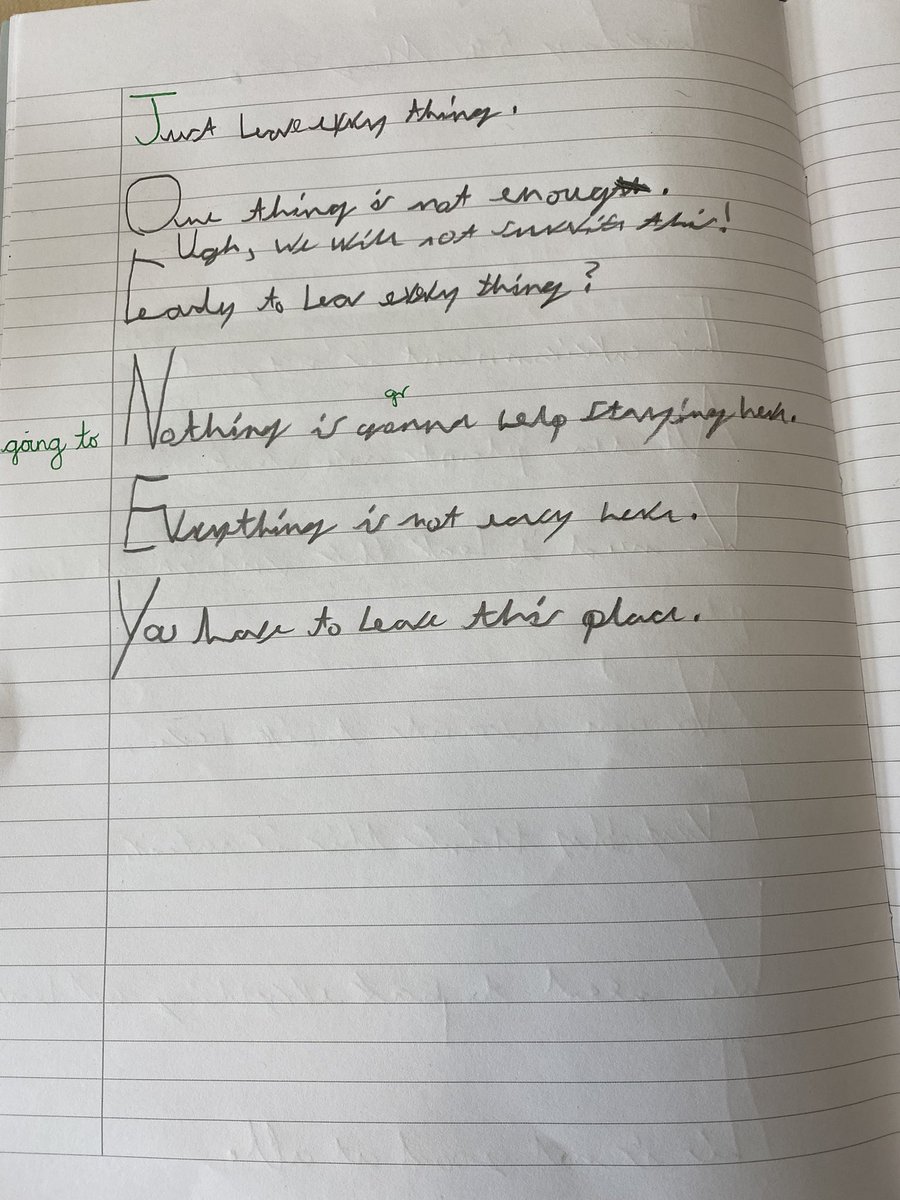 Just leave every thing.
One thing is not enough.
Ugh, we will not survive this!
Ready to leav every thing?
gr
going to
Nothing is gonna help staying here.
Everything is not easy here.
You have to leave this place.